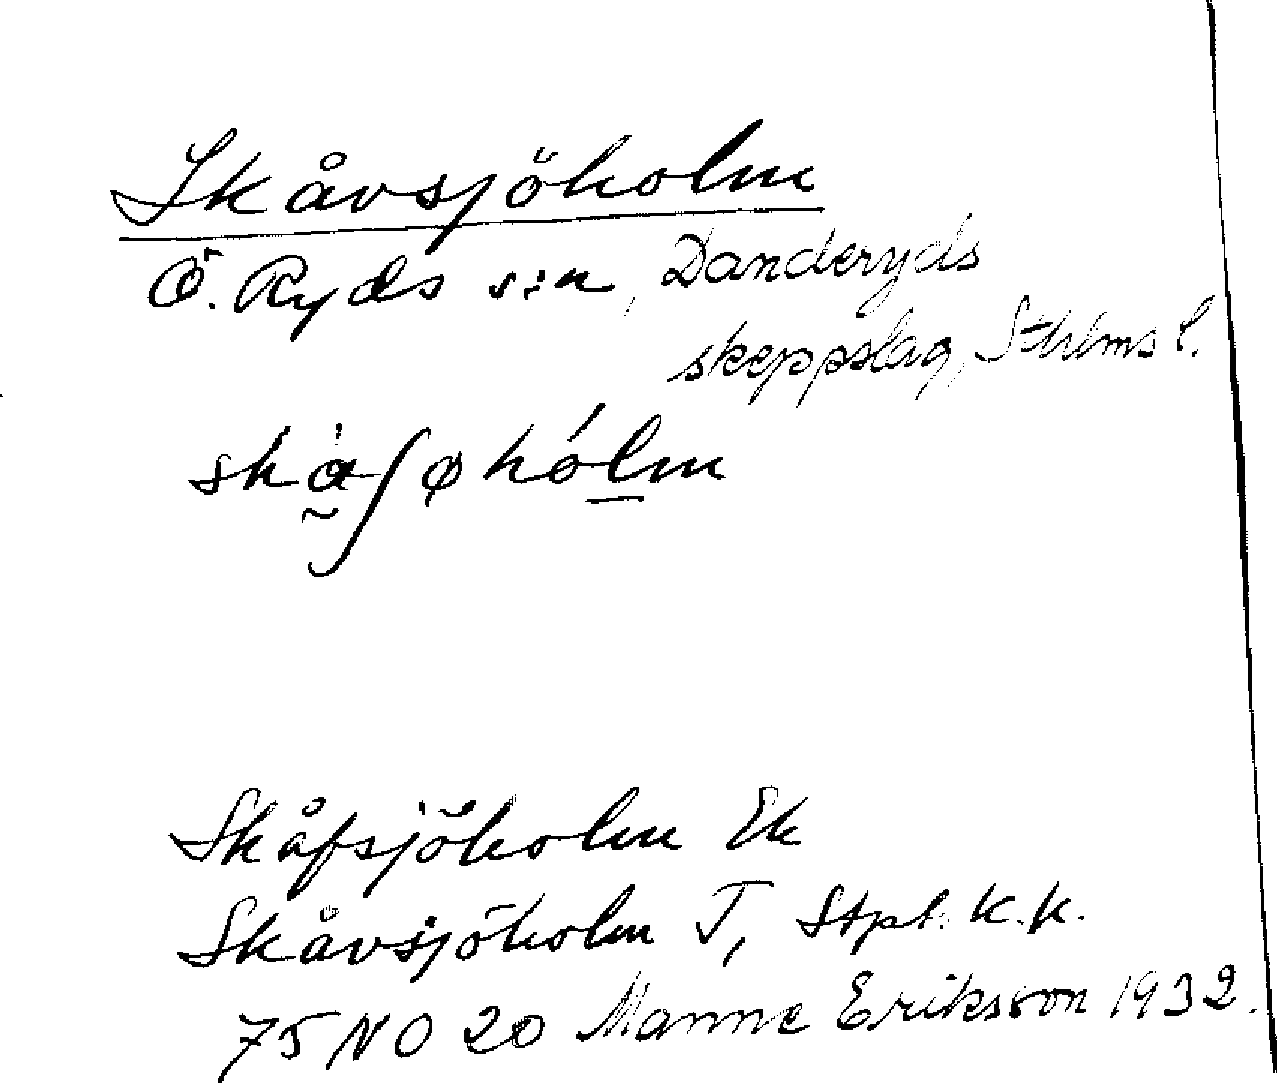 Skåvsjöholm
Ö. Ryds s:n, Danderyds
skeppslag, Sthlms l.
skå̀ʃøhólm
Skåfsjöholm Ek
Skåvsjöholm T, Stpl. K.K.
75 NO 20 Manne Eriksson 1932.